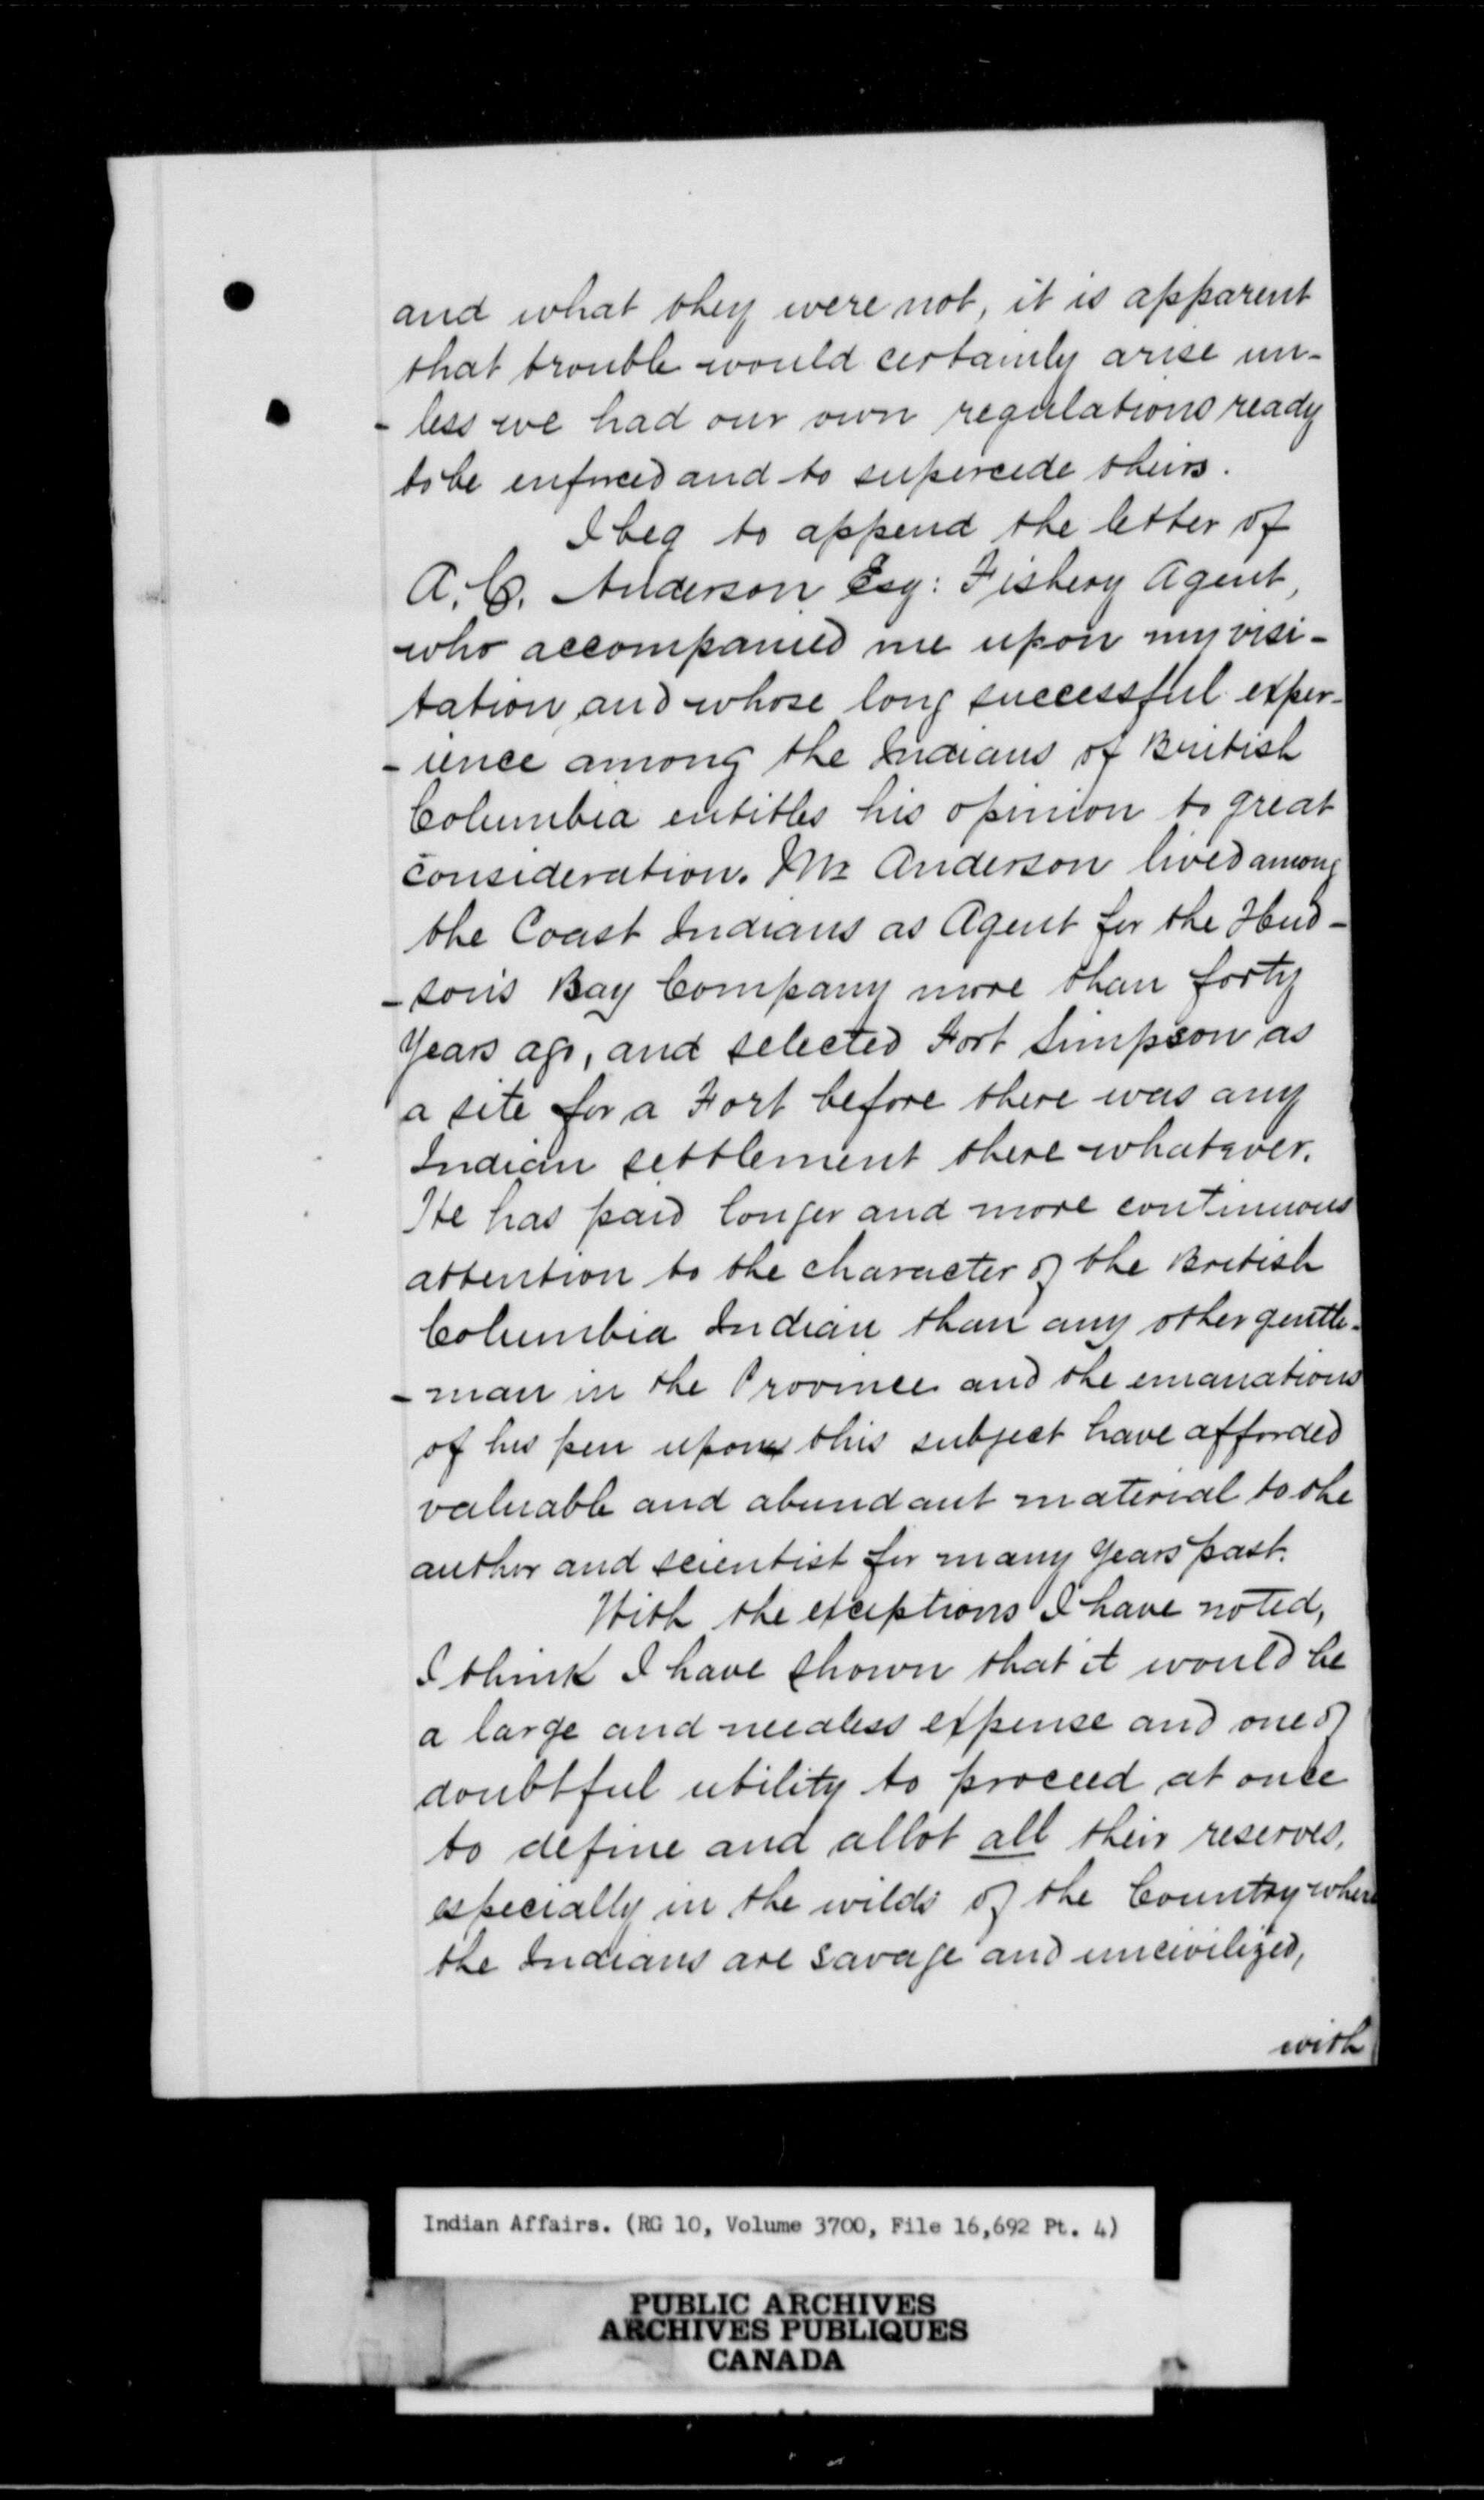 and what they were not, it is apparent
that trouble would certainly arise un-
- less we had our own regulations ready
to be enforced and to supercede theirs.
I beg to append the letter of
A. C. Anderson Esq: Fishery Agent,
who accompanied me upon my visi-
tation, and whose long successful exper-
- ience among the Indians of British
Columbia entitles his opinion to great
consideration. Mr Anderson lived among
the Coast Indians as Agent for the Hud-
- son's Bay Company more than forty
years ago, and selected Fort Simpson as
a site for a Fort before there was any
Indian settlement there whatever.
He has paid longer and more continuous
attention to the character of the British
Columbia Indian than any other gentle-
- man in the Province and the emanations
of his pen upon this subject have afforded
valuable and abundant material to the
author and scientist for many years past.
With the exceptions I have noted,
I think I have shown that it would be
a large and needless expense and one of
doubtful utility to proceed at once
to define and allot all their reserves,
especially in the wilds of the Country where
the Indians are savage and uncivilized,
with
Indian Affairs. (RG 10, Volume 3700, File 16,692 Pt. 4)
PUBLIC ARCHIVES
ARCHIVES PUBLIQUES
CANADA